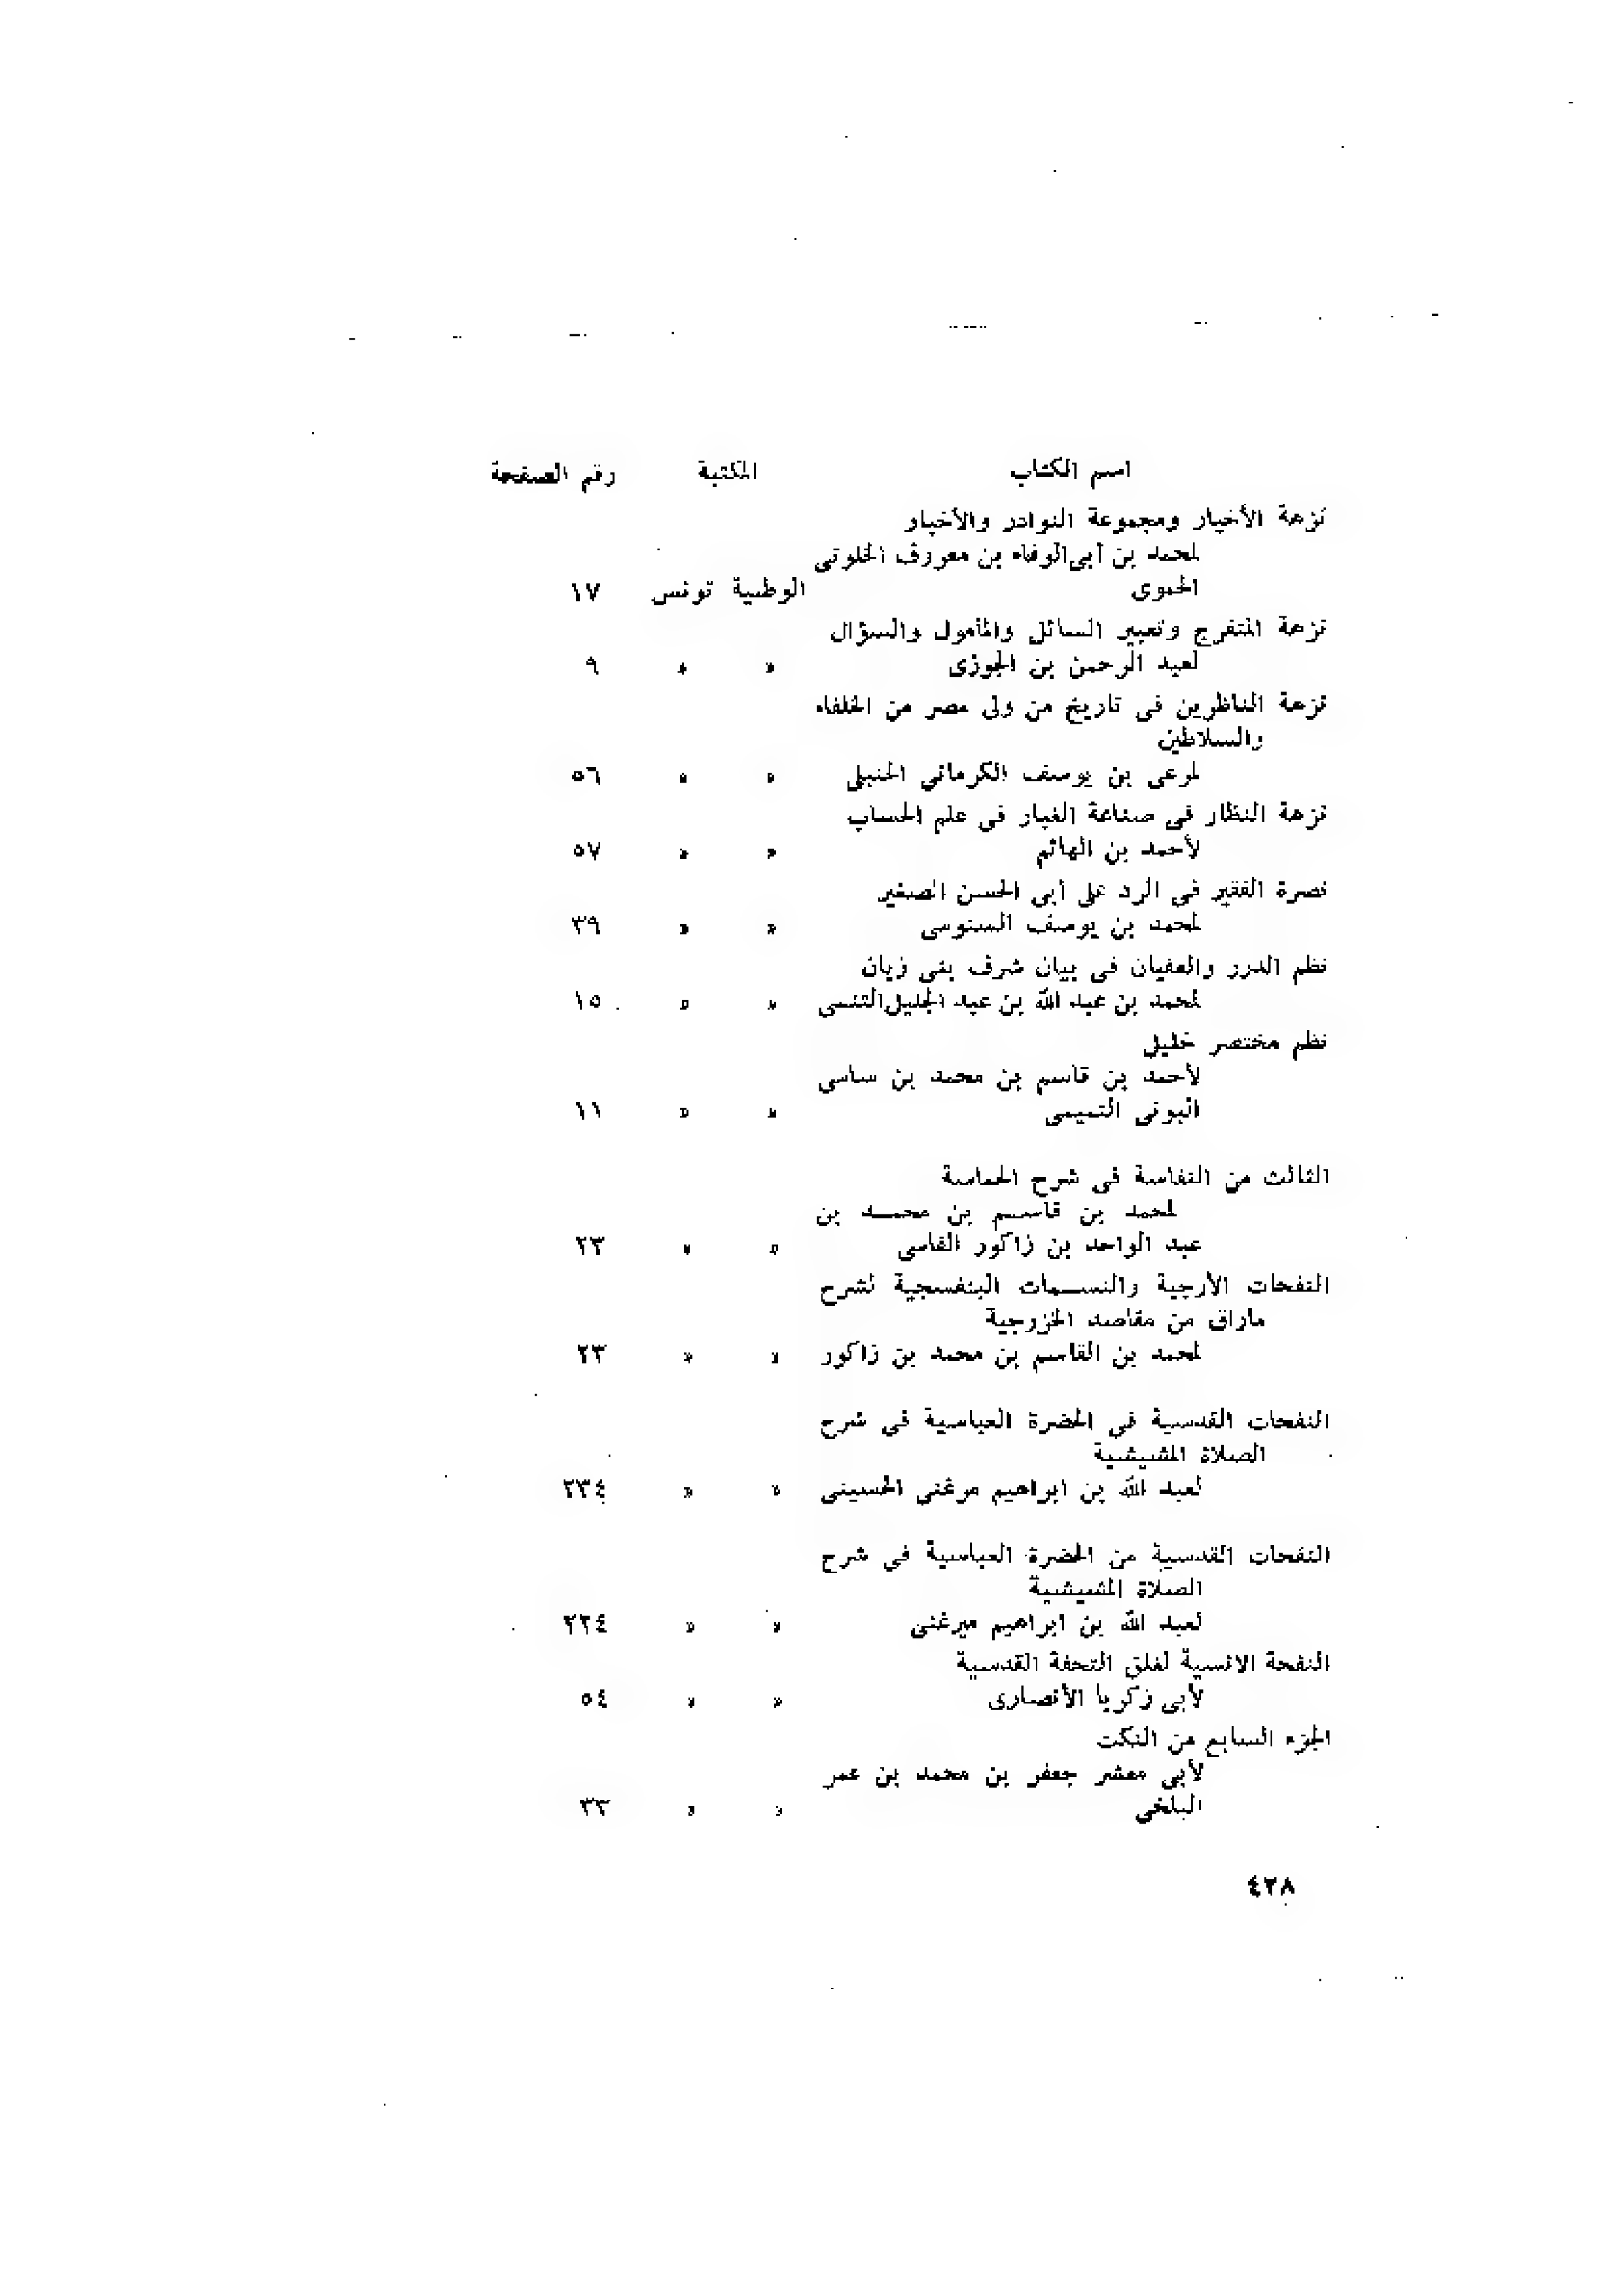 اسم الكتاب المكتبة رقم الصفحة
نزهة الأخيار ومجموعة النوادر والأخبار
لمحمد بن أبى الوفاء بن معروف الخلوتى
الحموى الوطنية تونس ١٧
نزهة المتفرج وتعبير السائل والمأمول والسؤال
لعبد الرحمن بن الجوزى » » ٩
نزهة الناظرين فى تاريخ من ولى مصر من الخلفاء
والسلاطين
لمرعى بن يوسف الكرمانى الحنبلى » » ٥٦
نزهة النظار فى صناعة الغبار فى علم الحساب
لأحمد بن الهائم » » ٥٧
نصرة الفقير فى الرد على أبى الحسن الصغير
لمحمد بن يوسف السنوسى » » ٣٩
نظم الدرر والعقيان فى بيان شرف بنى زيان
لمحمد بن عبد الله بن عبد الجليل التنسى » » ١٥
نظم مختصر خليل
لأحمد بن قاسم بن محمد بن ساسى
البونى التميمى » » ١١
الثالث من النفاسة فى شرح الحماسة
لمحمد بن قاسم بن محمد بن
عبد الواحد بن زاكور الفاسى » » ٢٣
النفحات الأرجية والنسمات البنفسجية لشرح
ماراق من مقاصد الخزرجية
لمحمد بن القاسم بن محمد بن زاكور » » ٢٣
النفحات القدسية فى الحضرة العباسية فى شرح
الصلاة المشيشية
لعبد الله بن ابراهيم مرغنى الحسينى » » ٢٣٤
النفحات القدسية من الحضرة العباسية فى شرح
الصلاة المشيشية
لعبد الله بن ابراهيم ميرغنى » » ٢٢٤
النفحة الانسية لغلق التحفة القدسية
لأبى زكريا الأنصارى » » ٥٤
الجزء السابع من النكت
لأبى معشر جعفر بن محمد بن عمر
البلخى » » ٣٣
٤٢٨